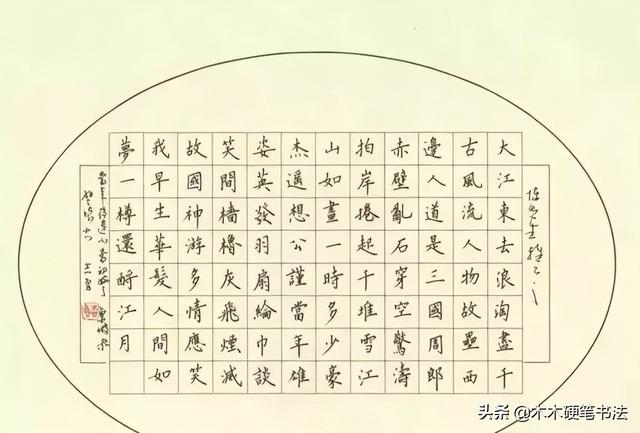 大江東去浪淘盡千
古風流人物故壘西
邊人道是三國周郎
赤壁亂石穿空驚濤
拍岸捲起千堆雪江
山如畫一時多少豪
杰遥想公謹當年雄
姿英發羽扇綸巾談
笑間檣櫓灰飛煙滅
故國神游多情應笑
我早生華髮人間如
夢一樽還酹江月
头条 @木木硬笔书法